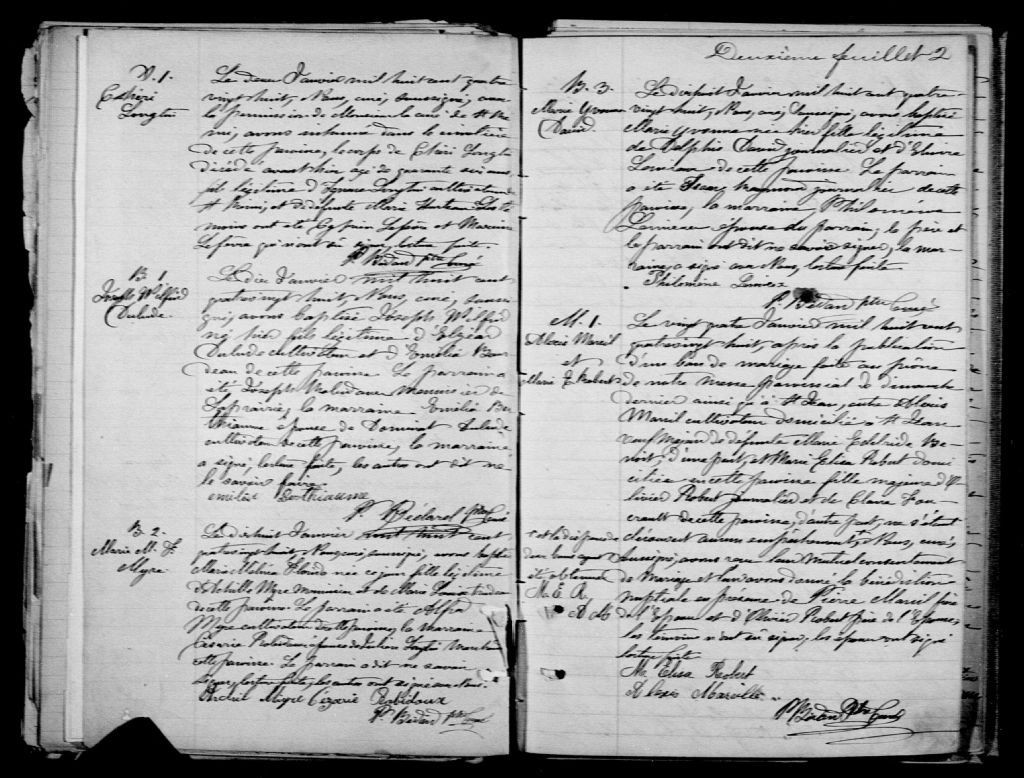 S. 1.
Longtin
Le deux Janvier mil huit cent quatre
vingt huit, Nous, curé, soussigné, avec
la permission de Monsieur le curé de St Ré
mi, avons inhumé dans le cimetière
de cette paroisse, le corps de Longtin
décédé avant hier agé de quarante six ans
fils légitime d' Longtin cultivateur de
St Rémi, et de défunte Marie Les té
moins ont été Cyprien Lefebvre et
Lefebvre qui n'ont su signer, lecture faite.
P. Bédard Ptre Curé
B. 1
Joseph Wilfrid
Dulude.
Le Dix Janvier mil huit cent
quatrevingt huit, Nous, curé, sous-
signé, avons baptisé Joseph Wilfrid
né hier fils légitime d'Elzéar
Dulude cultivateur et d'Emélia Bour
deau de cette paroisse. Le parrain a
été Joseph menuisier de
Laprairie, la marraine Emélia Ber
thiaume épouse de Dominat Dulude
cultivateur de cette paroisse, la marraine
a signé, lecture faite, les autres ont dit ne
le savoir faire.
emélie Berthiaume
P. Bédard Ptre Curé
B. 2.
Marie M. F.
Myre
Le dixhuit Janvier mil huit cent
quatrevingt huit, Nous, curé, soussigné, avons baptisé
Marie née ce jour fille légitime
d'Achille Myre menuisier et de Marie
de cette paroisse. Le parrain a été Alfred
Myre cultivateur de cette paroisse, la marraine
Césarie Robidoux épouse de Longtin
cette paroisse. Le parrain a dit ne savoir
signer, lecture faite, les autres ont signé avec Nous.
Myre Cézarie Robidoux
P. Bédard Ptre Curé
Deuxième feuillet 2
B. 3.
Marie Yvonne
David.
Le dixhuit Janvier mil huit cent quatre-
vingt huit, Nous, curé, soussigné, avons baptisé
Marie Yvonne née hier fille légitime
de Delphis David journalier et d'Elmire
de cette paroisse. Le parrain
a été Isaac Raymond journalier de cette
paroisse, la marraine Philomène
épouse du parrain; le père et
le parrain ont dit ne savoir signer, la mar-
raine, a signé avec Nous, lecture faite.
Philomène
P. Bédard Ptre Curé
M. 1.
Alexis Mareil
et
Marie E. Robert
Le vingt quatre Janvier mil huit cent
quatrevingt huit, après la publication
d'un ban de mariage faite au prône
de notre Messe paroissiale de dimanche
dernier ainsi qu'à St Jean, entre Alexis
Mareil cultivateur domicilié à St Jean
veuf majeur de défunte Marie Edelvide Be-
noit, d'une part, et Marie Elisa Robert domi
ciliée en cette paroisse fille majeure d'O
livier Robert journalier et de Claire
de cette paroisse, d'autre part, ne s'étant
découvert aucun empêchement, Nous, curé,
soussigné, avons reçu leur mutuel consentement
de Mariage et leur avons donné la bénédiction
nuptiale en présence de Pierre Mareil frère
de l'Epoux et d'Olivier Robert père de l'Epouse,
les témoins n'ont su signer, les époux ont signé
lecture faite
+ et la dispense de
deux bans ayant
été obtenue
M. E. R.
A M
M. Elisa Robert
Alexis Marville
P. Bédard Ptre Curé